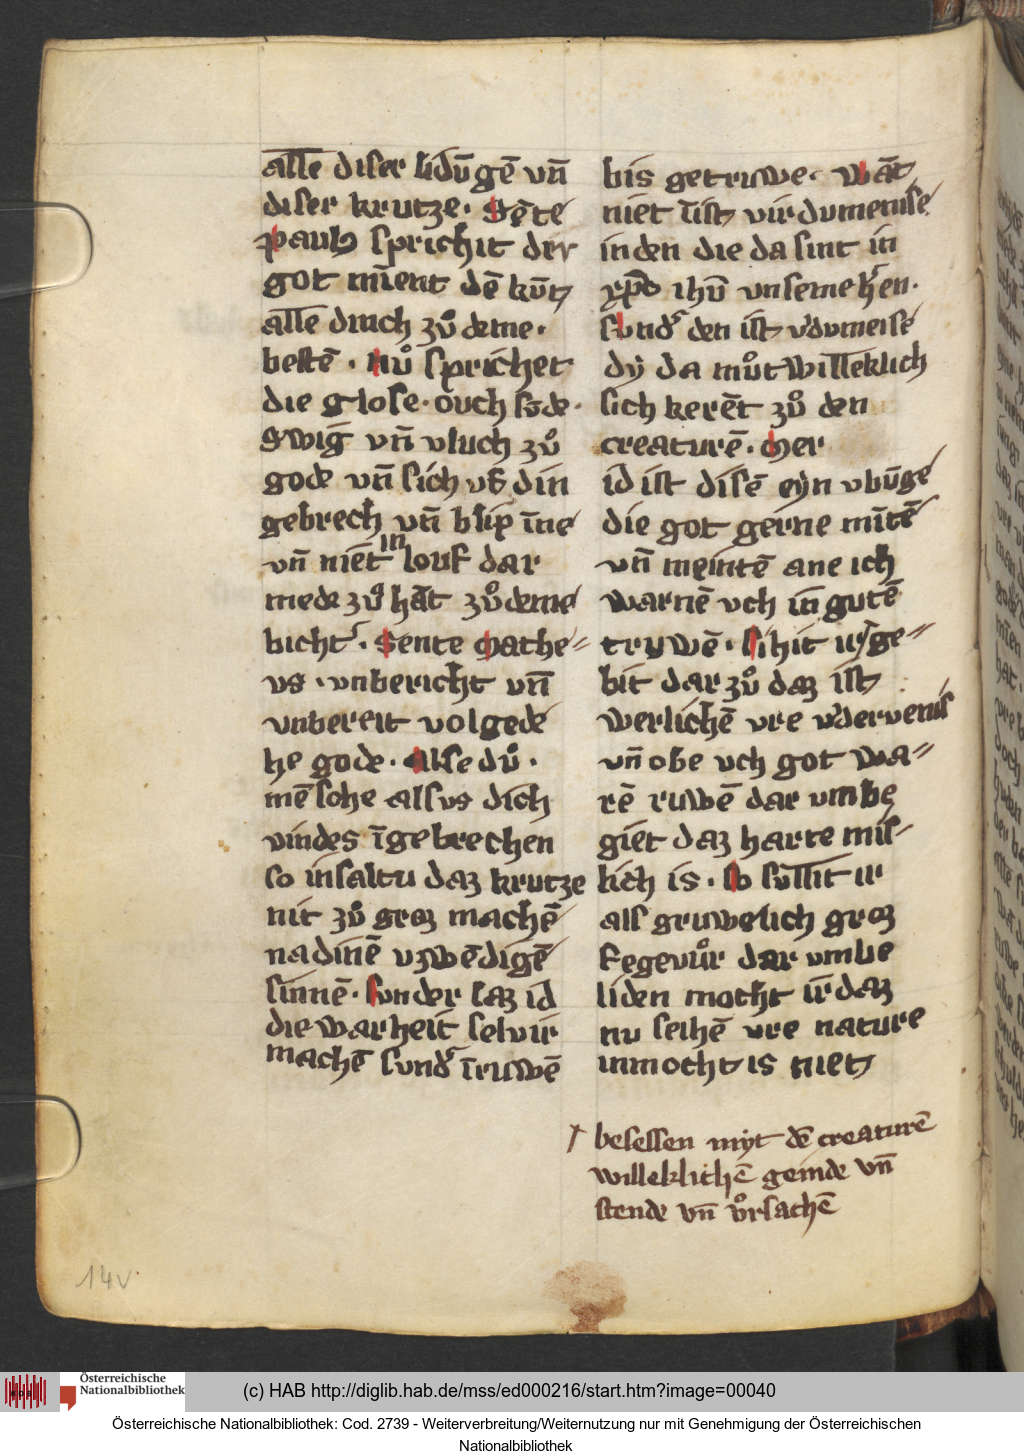 alle diser lidūgē vn̄
diser krutze. Sēte
Paulꝰ sprichit der
got mīent dē kūt
alle druch zů deme.
bestē. Nů sprichet
die glose. ouch sōde.
swig vn̄ vluch zů
gode vn̄ sich vf̄ din
gebrech vn̄ blip īne
vn̄ niet in louf dar
mede zů hāt zů deme
bicht'. Sente Mathe⸗
vs. vnbericht vn̄
vnbereit volgede
he gode. Alse dů.
mēsche alsus dich
vindes īgebrechen
so insaltu daz krutze
nit zů groz machē
na dinē vzwēdigē
sinnē. sunder laz id
die warheit selvir
machē sund' īruwē
bis getruwe. wāt
niet īist vir dumenise
in den die da sint in
xp̄o ihū vnseme h'en.
sund' den ist v'dumeise
dy da můtwilleklich
sich kerēt zů den
creaturē. Mer
id ist disē eyn vbūge
die got gerne mītē
vn̄ meintē ane ich
warnē vch in gutē
truwē. sihit ir ge⸗
bit dar zů daz ist
werlichē vre v'dervenis
vn̄ obe vch got wa⸗
rē ruwē dar vmbe
giet daz harte mis⸗
lich is. So sullit ir
als gruwelich groz
fegevůr dar vmbe
liden mocht ir daz
nu seihē vre nature
inmocht is niet
† besessen myt dē creaturē
willeklichē geinde vn̄
stende vn̄ v̊rsachē
14v.
Österreichische
Nationalbibliothek
(c) HAB http://diglib.hab.de/mss/ed000216/start.htm?image=00040
Österreichische Nationalbibliothek: Cod. 2739 - Weiterverbreitung/Weiternutzung nur mit Genehmigung der Österreichischen
Nationalbibliothek